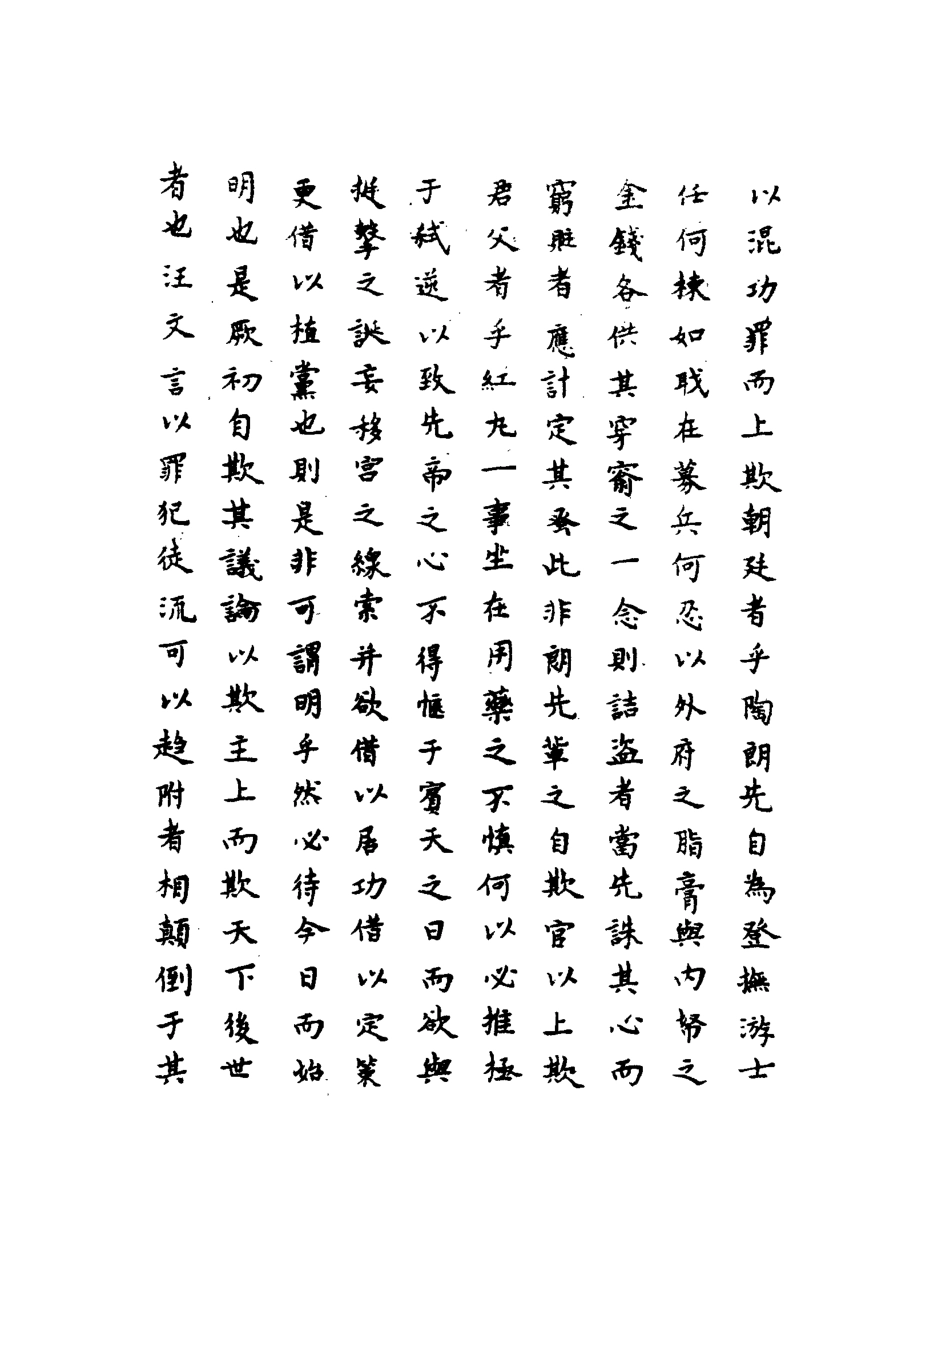 以混功罪而上欺朝廷者乎陶朗先自為登撫游士
任何棟如戝在募兵何忍以外府之脂膏與内帑之
金錢各供其穿窬之一念則詰盜者當先誅其心而
窮賍者應計定其蚤此非朗先輩之自欺官以上欺
君父者乎紅丸一事坐在用藥之不慎何以必推極
于弑逆以致先帝之心不得愜于賓天之日而欲與
挺擊之誕妄移宮之線索并欲借以居功借以定策
更借以植黨也則是非可謂明乎然必待今日而始
明也是厥初自欺其議論以欺主上而欺天下後世
者也汪文言以罪犯徒流可以趋附者相顛倒于其